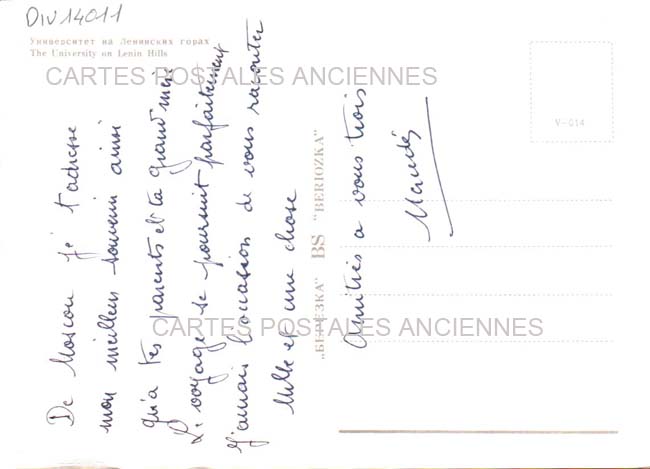 DIV14011
Университет на Ленинских горах
The University on Lenin Hills
CARTES POSTALES ANCIENNES
De Moscou je t'adresse
mon meilleur souvenir ainsi
qu'à tes parents et ta grand mère
Le voyage se poursuit parfaitement
J'aurais l'occasion de vous raconter
Mille et une chose
"БЕРЕЗКА" BS "BERIOZKA"
V-014
Amitiés a vous trois
CARTES POSTALES ANCIENNES